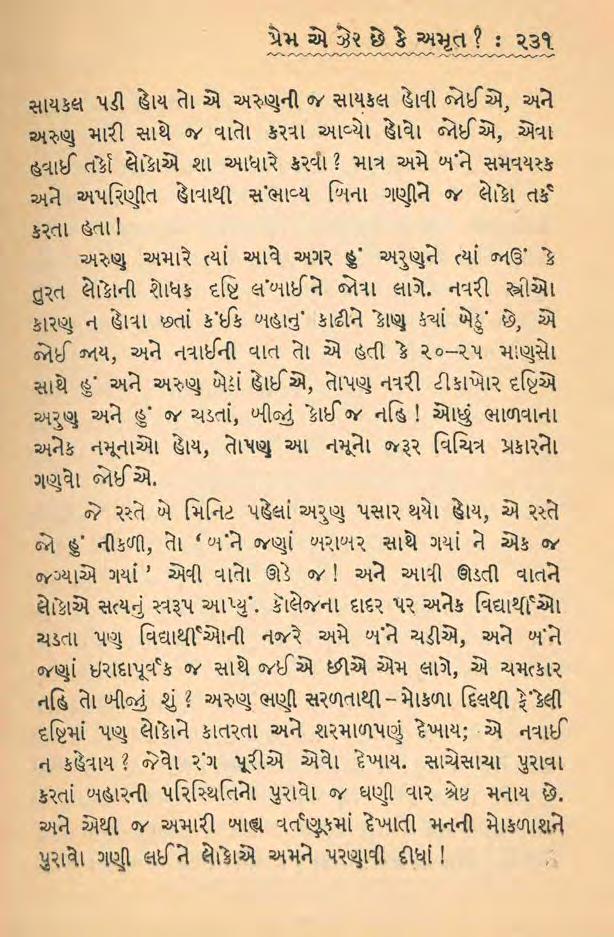 પ્રેમ એ ઝેર છે કે અમૃત ? : ૨૩૧
સાયકલ પડી હોય તો એ અરુણની જ સાયકલ હોવી જોઈએ, અને
અરુણ મારી સાથે જ વાતો કરવા આવ્યો હોવો જોઈએ, એવા
હવાઈ તર્કો લોકોએ શા આધારે કરવા ? માત્ર અમે બંને સમવયસ્ક
અને અપરિણીત હોવાથી સંભાવ્ય બિના ગણીને જ લોકો તર્ક
કરતા હતા !
અરુણ અમારે ત્યાં આવે અગર હું અરુણને ત્યાં જાઉં કે
તુરત લોકોની શોધક દૃષ્ટિ લંબાઈને જોવા લાગે. નવરી સ્ત્રીઓ
કારણ ન હોવા છતાં કંઈક બહાનું કાઢીને કોણ ક્યાં બેઠું છે, એ
જોઈ જાય, અને નવાઈની વાત તો એ હતી કે ૨૦–૨૫ માણસો
સાથે હું અને અરુણ બેઠાં હોઈએ, તોપણ નવરી ટીકાખોર દૃષ્ટિએ
અરુણ અને હું જ ચડતાં, બીજું કોઈ જ નહિ ! ઓછું ભાળવાના
અનેક નમૂનાઓ હોય, તોપણ આ નમૂનો જરૂર વિચિત્ર પ્રકારનો
ગણવો જોઈએ.
જે રસ્તે બે મિનિટ પહેલાં અરુણ પસાર થયો હોય, એ રસ્તે
જો હું નીકળી, તો ‘ બંને જણાં બરાબર સાથે ગયાં ને એક જ
જગ્યાએ ગયાં ’ એવી વાતો ઊડે જ ! અને આવી ઊડતી વાતને
લોકોએ સત્યનું સ્વરૂપ આપ્યું. કૉલેજના દાદર પર અનેક વિદ્યાર્થીઓ
ચડતા પણ વિદ્યાર્થીઓની નજરે અમે બંને ચડીએ, અને બંને
જણાં ઇરાદાપૂર્વક જ સાથે જઈએ છીએ એમ લાગે, એ ચમત્કાર
નહિ તો બીજું શું ? અરુણ ભણી સરળતાથી – મોકળા દિલથી ફેંકેલી
દૃષ્ટિમાં પણ લોકોને કાતરતા અને શરમાળપણું દેખાય; એ નવાઈ
ન કહેવાય ? જેવો રંગ પૂરીએ એવો દેખાય. સાચેસાચા પુરાવા
કરતાં બહારની પરિસ્થિતિનો પુરાવો જ ઘણી વાર શ્રેષ્ઠ મનાય છે.
અને એથી જ અમારી બાહ્ય વર્તણૂકમાં દેખાતી મનની મોકળાશને
પુરાવો ગણી લઈને લોકોએ અમને પરણાવી દીધાં !